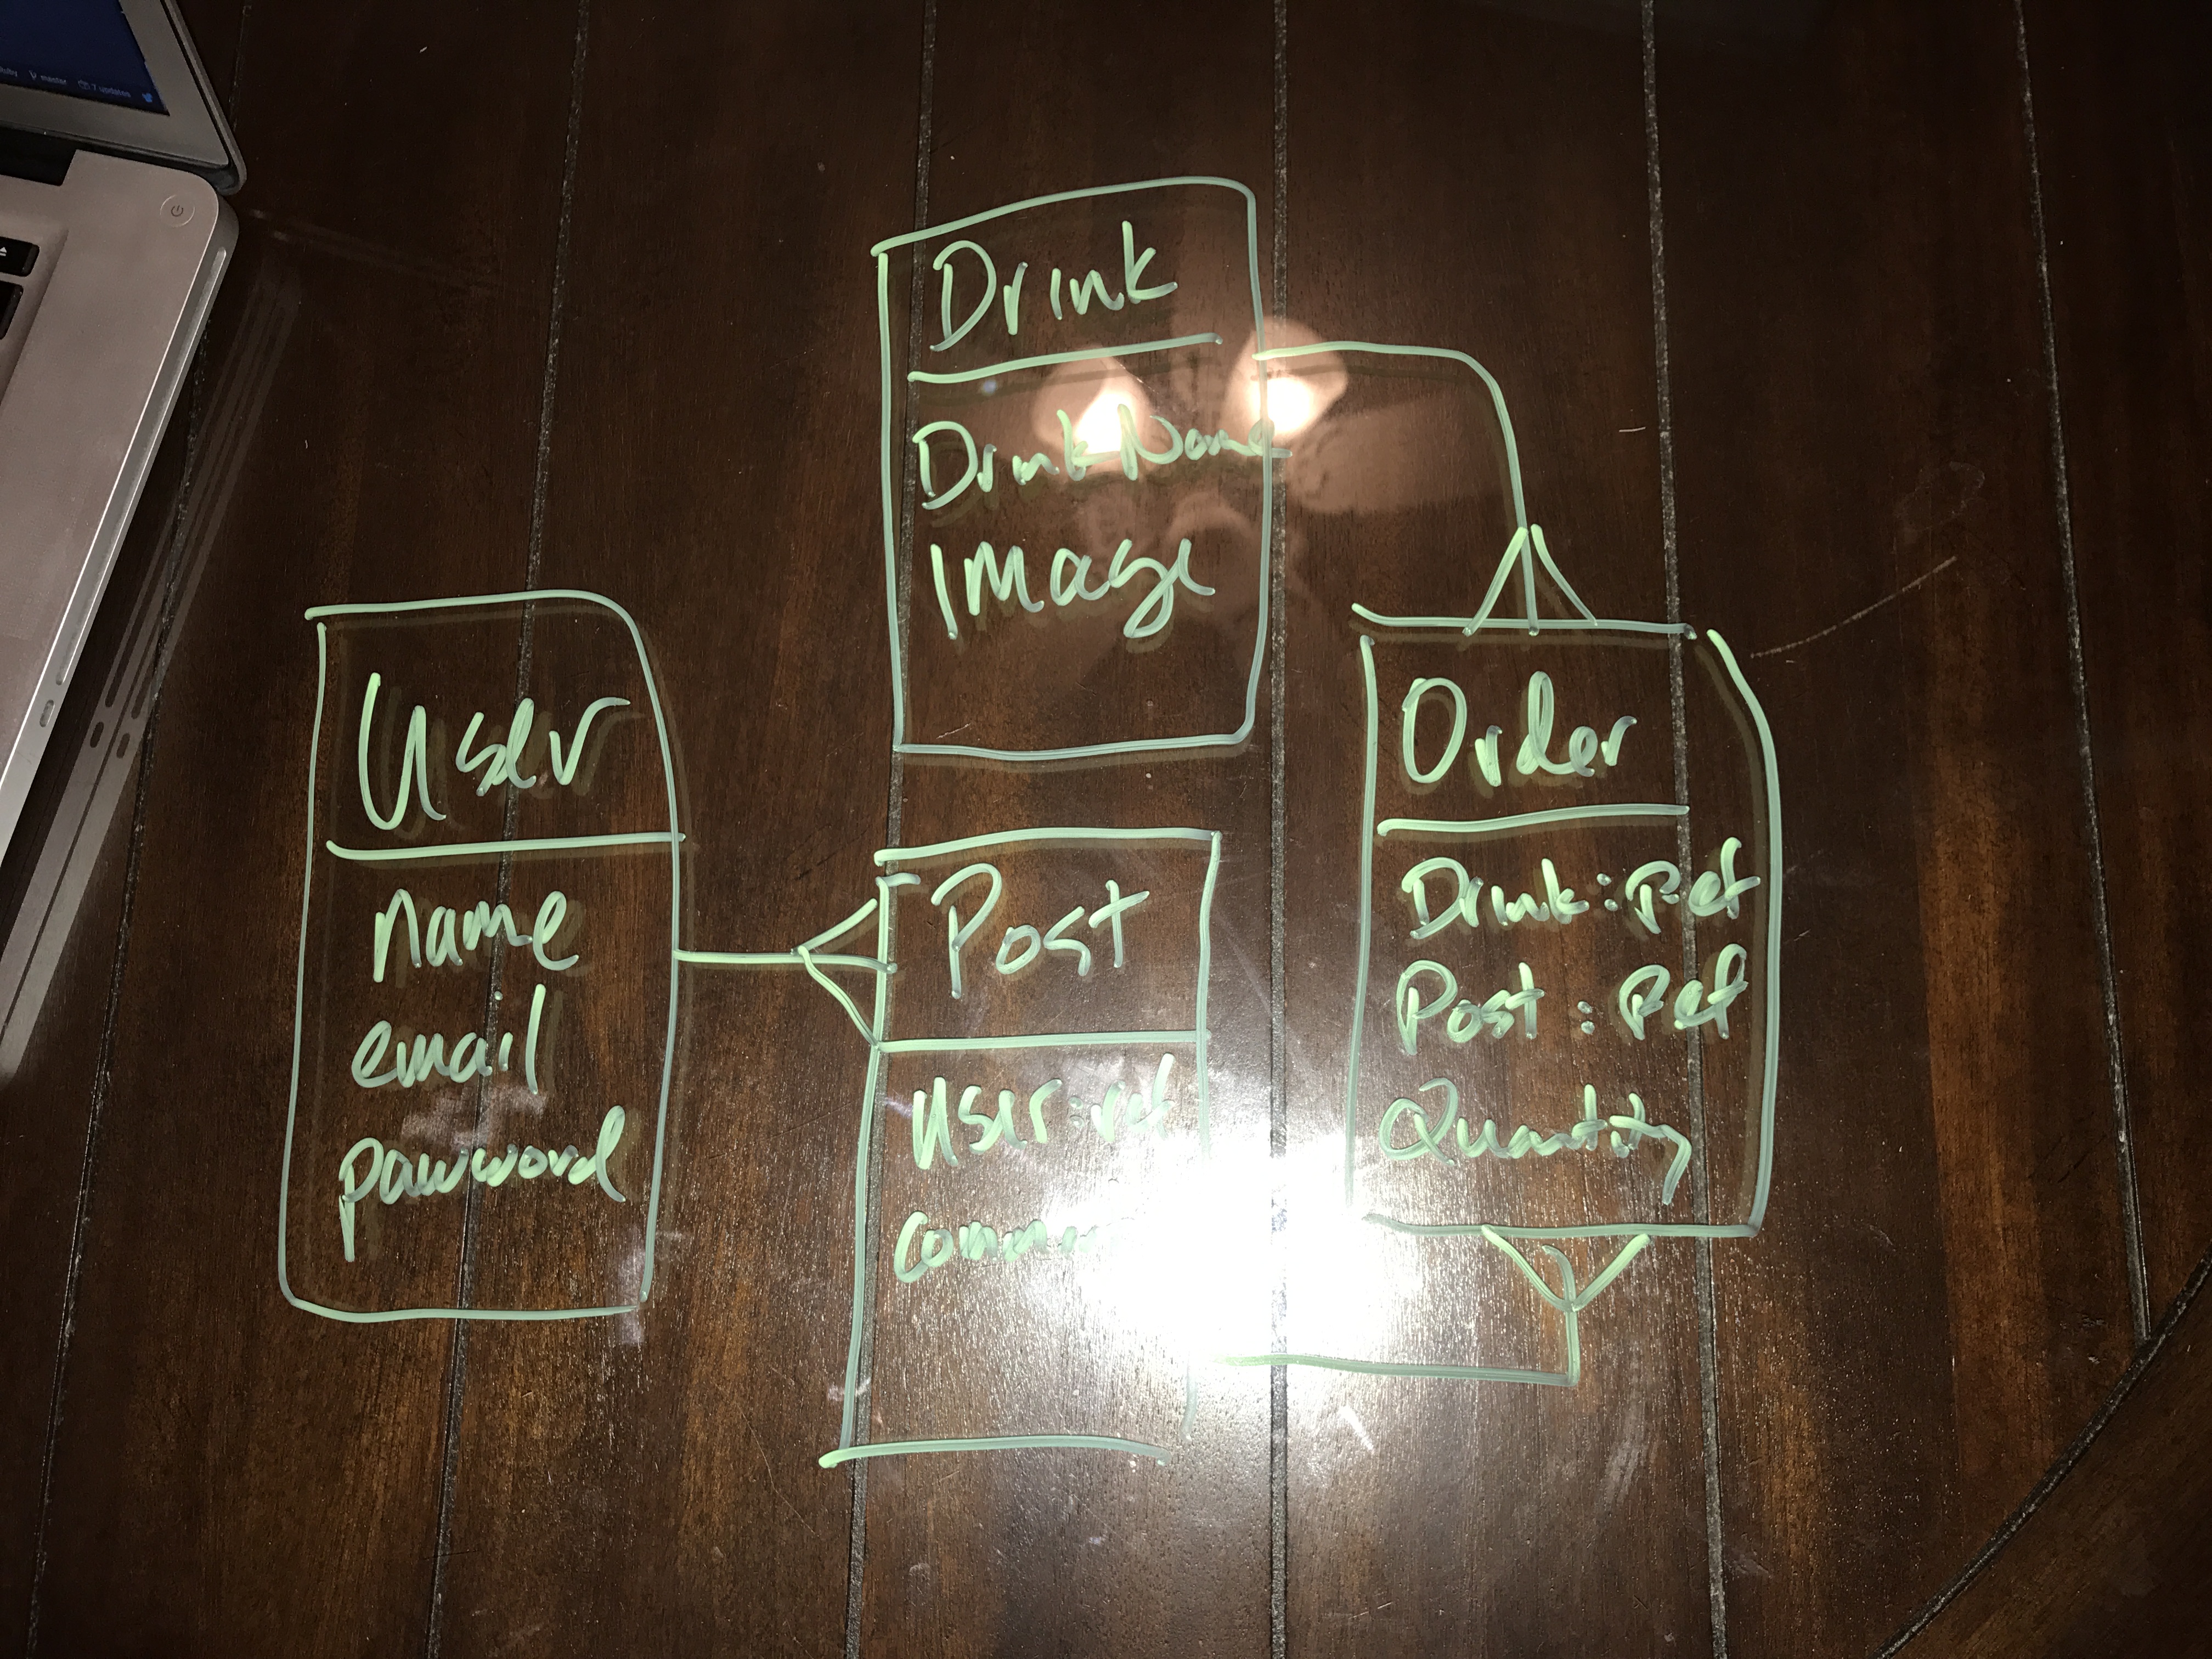 master 7 updates
Drink
DrinkName
Image
User
name
email
password
Post
User:ref
Order
Drink:Ref
Post:Ref
Quantity